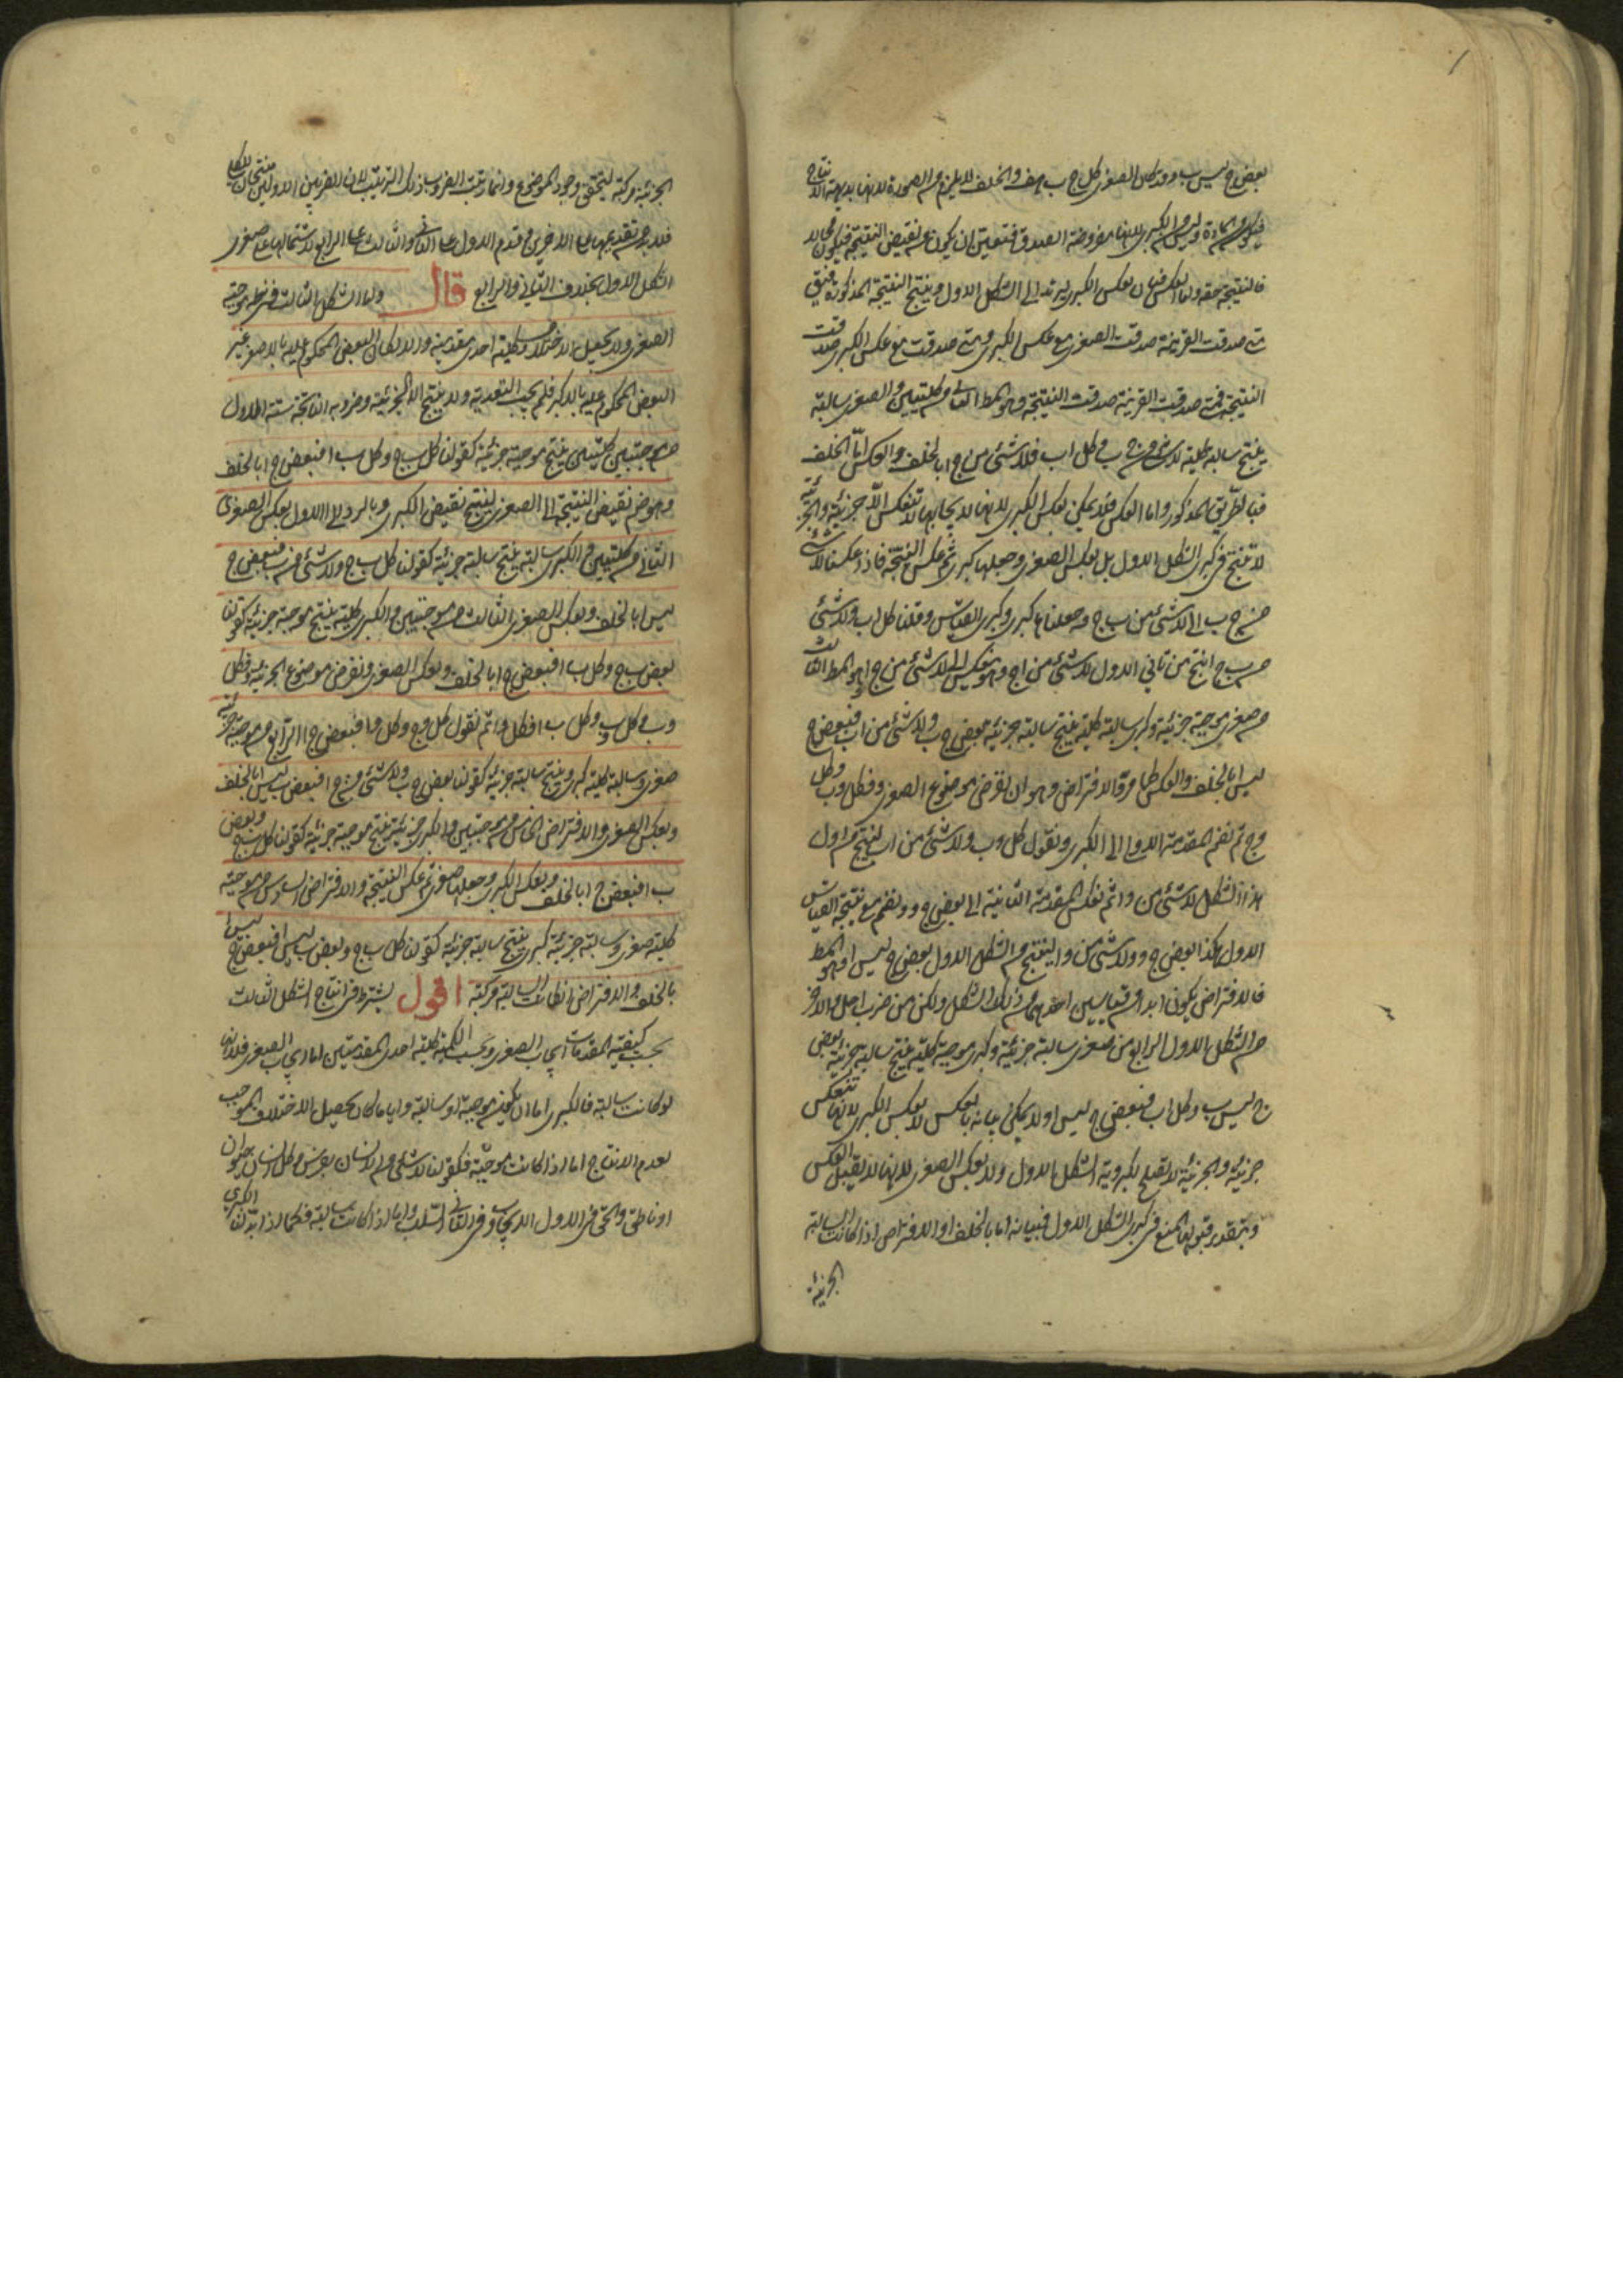 بعض ج ليس ب وقد كان الصغرى كل ج ب هف والخلف لا يلزم من الصورة لانها بديهية الانتاج
فيكون من المادة وليس من الكبرى لانها مفروضة الصدق فتعين ان يكون من نقيض النتيجة فيكون محالا
فالنتيجة حقة واما العكس فبان يعكس الكبرى ليرتد الى الشكل الاول وينتج النتيجة المذكورة
متى صدقت القرينة صدقت الصغرى مع عكس الكبرى ومتى صدقت مع عكس الكبرى صدقت
النتيجة فمتى صدقت القرينة صدقت النتيجة وهو المط الثانى من كليتين والصغرى سالبة
ينتج سالبة كلية لا شئ من ج ب وكل اب فلا شئ من ج ا بالخلف والعكس امّا الخلف
فبالطريق المذكور واما العكس فلا يمكن بعكس الكبرى لانها لايجابها لا تنعكس الّا جزئية والجزئية
لا تنتج فى كبرى الشكل الاول بل بعكس الصغرى وجعلها كبرى ثم عكس النتيجة فاذا عكسنا لا شئ
من ج ب الى لا شئ من ب ج وجعلناها كبرى وكبرى القياس وقلنا كل اب ولا شئ
من ب ج انتج من ثانى الاول لا شئ من ا ج وهو ينعكس الى لا شئ من ج ا وهو المط الثالث
من صغرى موجبة جزئية وكبرى سالبة كلية ينتج سالبة جزئية بعض ج ب ولا شئ من اب فبعض ج
ليس ا بالخلف والعكس كما مرّ والافتراض وهو ان نفرض موضوع الصغرى د فكل د ب وكل
د ج ثم نضم المقدمة الاولى الى الكبرى ونقول كل د ب ولا شئ من اب لينتج من اول
هذا الشكل لا شئ من د ا ثم نعكس المقدمة الثانية الى بعض ج د ونضم مع نتيجة القياس
الاول هكذا بعض ج د ولا شئ من د ا لينتج من الشكل الاول بعض ج ليس ا وهو المط
فالافتراض يكون ابدا من قياسين احدهما من ذلك الشكل ولكن من ضرب اجلى والاخر
من الشكل الاول الرابع من صغرى سالبة جزئية وكبرى موجبة كلية ينتج سالبة جزئية بعض
ج ليس ب وكل اب فبعض ج ليس ا ولا يمكن بيانه بالعكس لا بعكس الكبرى لانها تنعكس
جزئية والجزئية لا تصلح لكبروية الشكل الاول ولا بعكس الصغرى لانها لا تقبل العكس
وبتقدير قبولها لا تقع فى كبرى الشكل الاول فبيانه اما بالخلف او الافتراض اذا كانت السالبة
الجزئية
الجزئية مركبة ليتحقق وجود الموضوع وانما رتبت الضروب ذلك الترتيب لان الضربين الاولين منتجان للكلى
فلا جرم تقديمهما على الاخرين وقدم الاول على الثانى والثالث على الرابع لاشتمالهما على صغرى
الشكل الاول بخلاف الثانى والرابع قال واما الشكل الثالث فشرطه موجبة
الصغرى والا يحصل الاختلاف وكلية احدى مقدمتيه والا لكان البعض المحكوم عليه بالاصغر غير
البعض المحكوم عليه بالاكبر فلم يجب التعدية ولا ينتج الا الجزئية وضروبه الناتجة ستة الاول
من موجبتين كليتين ينتج موجبة جزئية كقولنا كل ب ج وكل ب ا فبعض ج ا بالخلف
وهو ضم نقيض النتيجة الى الصغرى لينتج نقيض الكبرى وبالرد الى الاول بعكس الصغرى
الثانى من كليتين والكبرى سالبة ينتج سالبة جزئية كقولنا كل ب ج ولا شئ من ب ا فبعض ج
ليس ا بالخلف وبعكس الصغرى الثالث من موجبتين والكبرى كلية ينتج موجبة جزئية كقولنا
بعض ب ج وكل ب ا فبعض ج ا بالخلف وبعكس الصغرى ونفرض موضوع الجزئية د فكل
د ب وكل د ج وكل ب ا فكل د ا ثم نقول كل د ج وكل د ا فبعض ج ا الرابع من موجبة جزئية
صغرى وسالبة كلية كبرى وينتج سالبة جزئية كقولنا بعض ج ب ولا شئ من ج ا فبعض ب ليس ا بالخلف
وبعكس الصغرى والافتراض الخامس من موجبتين والكبرى جزئية ينتج موجبة جزئية كقولنا كل ب ج وبعض
ب ا فبعض ج ا بالخلف وبعكس الكبرى وجعلها صغرى ثم عكس النتيجة والافتراض السادس من موجبة
كلية صغرى وسالبة جزئية كبرى ينتج سالبة جزئية كقولنا كل ب ج وبعض ب ليس ا فبعض ج ليس ا
بالخلف والافتراض ان كانت السالبة مركبة اقول يشترط فى انتاج الشكل الثالث
بحسب كيفية المقدمات ايجاب الصغرى وبحسب الكمية كلية احدى المقدمتين اما ايجاب الصغرى فلانها
لو كانت سالبة فالكبرى اما ان يكون موجبة او سالبة وايا ما كان يحصل الاختلاف الموجب
لعدم الانتاج اما اذا كانت موجبة فكقولنا لا شئ من الانسان بفرس وكل انسان حيوان
او ناطق والحق فى الاول الايجاب وفى الثانى السلب واما اذا كانت سالبة فكما اذا بدلنا الكبرى